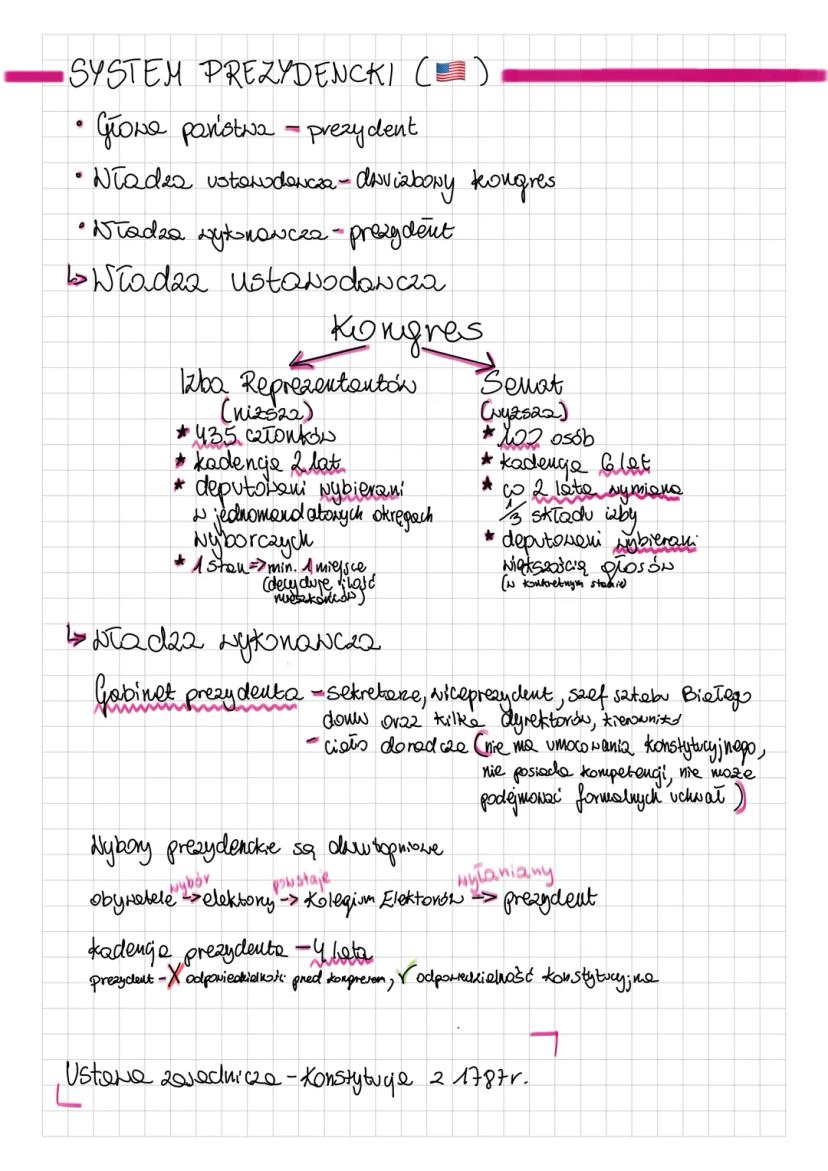 SYSTEM PREZYDENCKI (🇺🇸)
• Głowa państwa – prezydent
• Władza ustawodawcza – dwuizbowy kongres
• Władza wykonawcza – prezydent
↳ Władza ustawodawcza
Kongres
Izba Reprezentantów
(niższa)
* 435 członków
* kadencja 2 lat
* deputowani wybierani
w jednomandatowych okręgach
wyborczych
* 1 stan => min. 1 miejsce
(decyduje ilość
mieszkańców)
Senat
(wyższa)
* 100 osób
* kadencja 6 lat
* co 2 lata wymiana
1/3 składu izby
* deputowani wybierani
większością głosów
(w konkretnym stanie)
↳ władza wykonawcza
Gabinet prezydenta – sekretarze, wiceprezydent, szef sztabu Białego
domu oraz kilka dyrektorów, kierownicy
– ciało doradcze (nie ma umocowania konstytucyjnego,
nie posiada kompetencji, nie może
podejmować formalnych uchwał)
Wybory prezydenckie są dwustopniowe
wybór powstaje wyłaniany
obywatele -> elektorzy -> Kolegium Elektorów -> prezydent
kadencja prezydenta – 4 lata
prezydent – X odpowiedzialność przed kongresem, ✓ odpowiedzialność konstytucyjna
Ustawa zasadnicza – Konstytucja z 1787r.